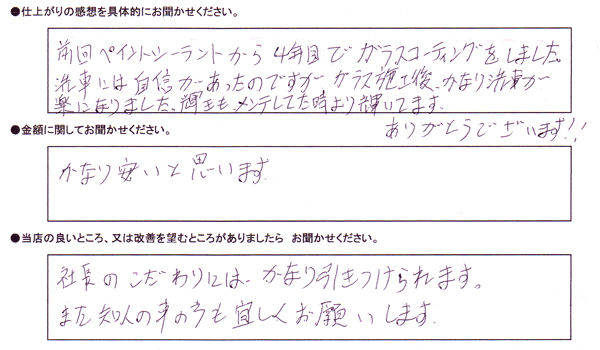 ●仕上がりの感想を具体的にお聞かせください。
前回ペイントシーラントから4年目でガラスコーティングをしました。
洗車には自信があったのですがガラス施工後、かなり洗車が
楽になりました、輝きも、メンテしてた時より輝いてます。
ありがとうございます!!
●金額に関してお聞かせください。
かなり安いと思います。
●当店の良いところ、又は改善を望むところがありましたら お聞かせください。
社長のこだわりには、かなり引きつけられます。
また知人の車の方も宜しくお願いします。